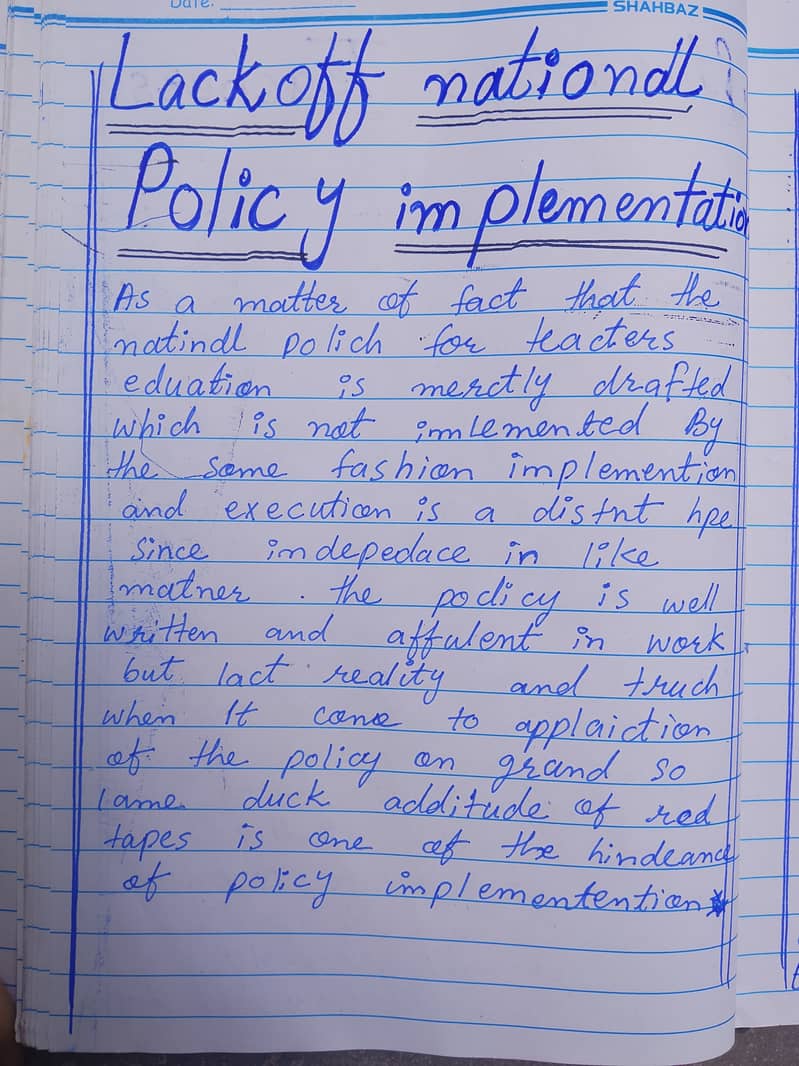 Date:
SHAHBAZ
Lack off national
Policy implementation
As a matter of fact that the
natindl polich for teacters
eduation is merctly drafted
which is not imlemented By
the same fashion implemention
and execution is a distnt hpe
since indepedace in like
matner. the podicy is well
written and affulent in work
but lact reality and truch
when It come to applaiction
of the policy on grand so
lame duck additude of red
tapes is one of the hindeance
of policy implementention